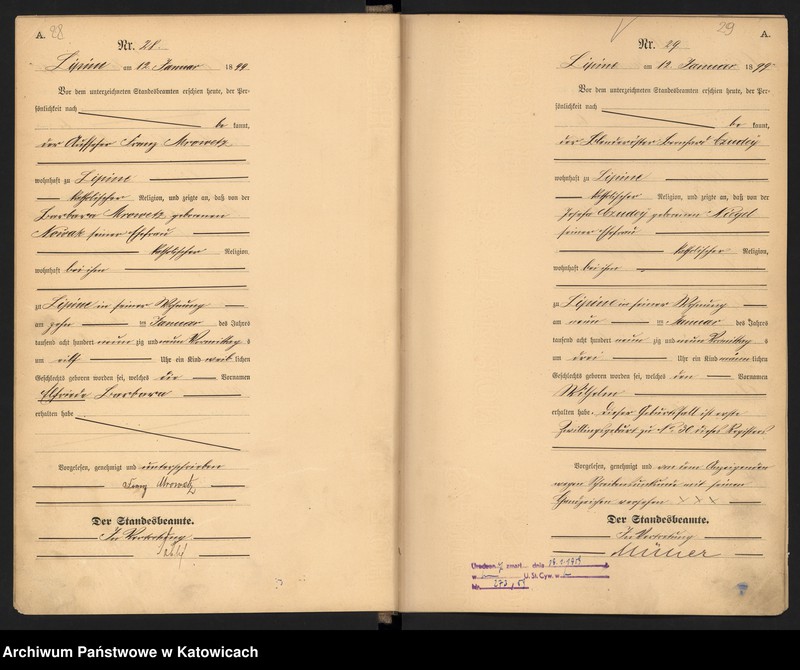 A. 28
Nr. 28.
Lipine am 12 Januar 1899
Vor dem unterzeichneten Standesbeamten erschien heute, der Per-
sönlichkeit nach
be kannt,
der Aufseher Franz Mrowetz
wohnhaft zu Lipine
katholischer Religion, und zeigte an, daß von der
Barbara Mrowetz geborenen
Nowak seiner Ehefrau
katholischer Religion
wohnhaft bei ihm
zu Lipine in seiner Wohnung
am zehn ten Januar des Jahres
tausend acht hundert neun zig und neun Vormittag s
um elf Uhr ein Kind weib lichen
Geschlechts geboren worden sei, welches die Vornamen
Elfriede Barbara
erhalten habe
Vorgelesen, genehmigt und unterschrieben
Franz Mrowetz
Der Standesbeamte.
In Vertretung
29 A.
Nr. 29
Lipine am 12 Januar 1899
Vor dem unterzeichneten Standesbeamten erschien heute, der Per-
sönlichkeit nach
be kannt,
der Czudey
wohnhaft zu Lipine
katholischer Religion, und zeigte an, daß von der
Josefa Czudey geborenen
seiner Ehefrau
katholischer Religion,
wohnhaft bei ihm
zu Lipine in seiner Wohnung
am neun ten Januar des Jahres
tausend acht hundert neun zig und neun Vormittag s
um drei Uhr ein Kind männ lichen
Geschlechts geboren worden sei, welches den Vornamen
Wilhelm
erhalten habe. Dieser Geburtsfall ist erste
Zwillingsgeburt zu No. 30 dieses Registers
Vorgelesen, genehmigt und von dem Anzeigenden
wegen Schreibensunkunde mit seinem
Handzeichen versehen XXX
Der Standesbeamte.
In Vertretung
Müller
zmarł dnia
w U. St. Cyw. w
Nr.
Archiwum Państwowe w Katowicach